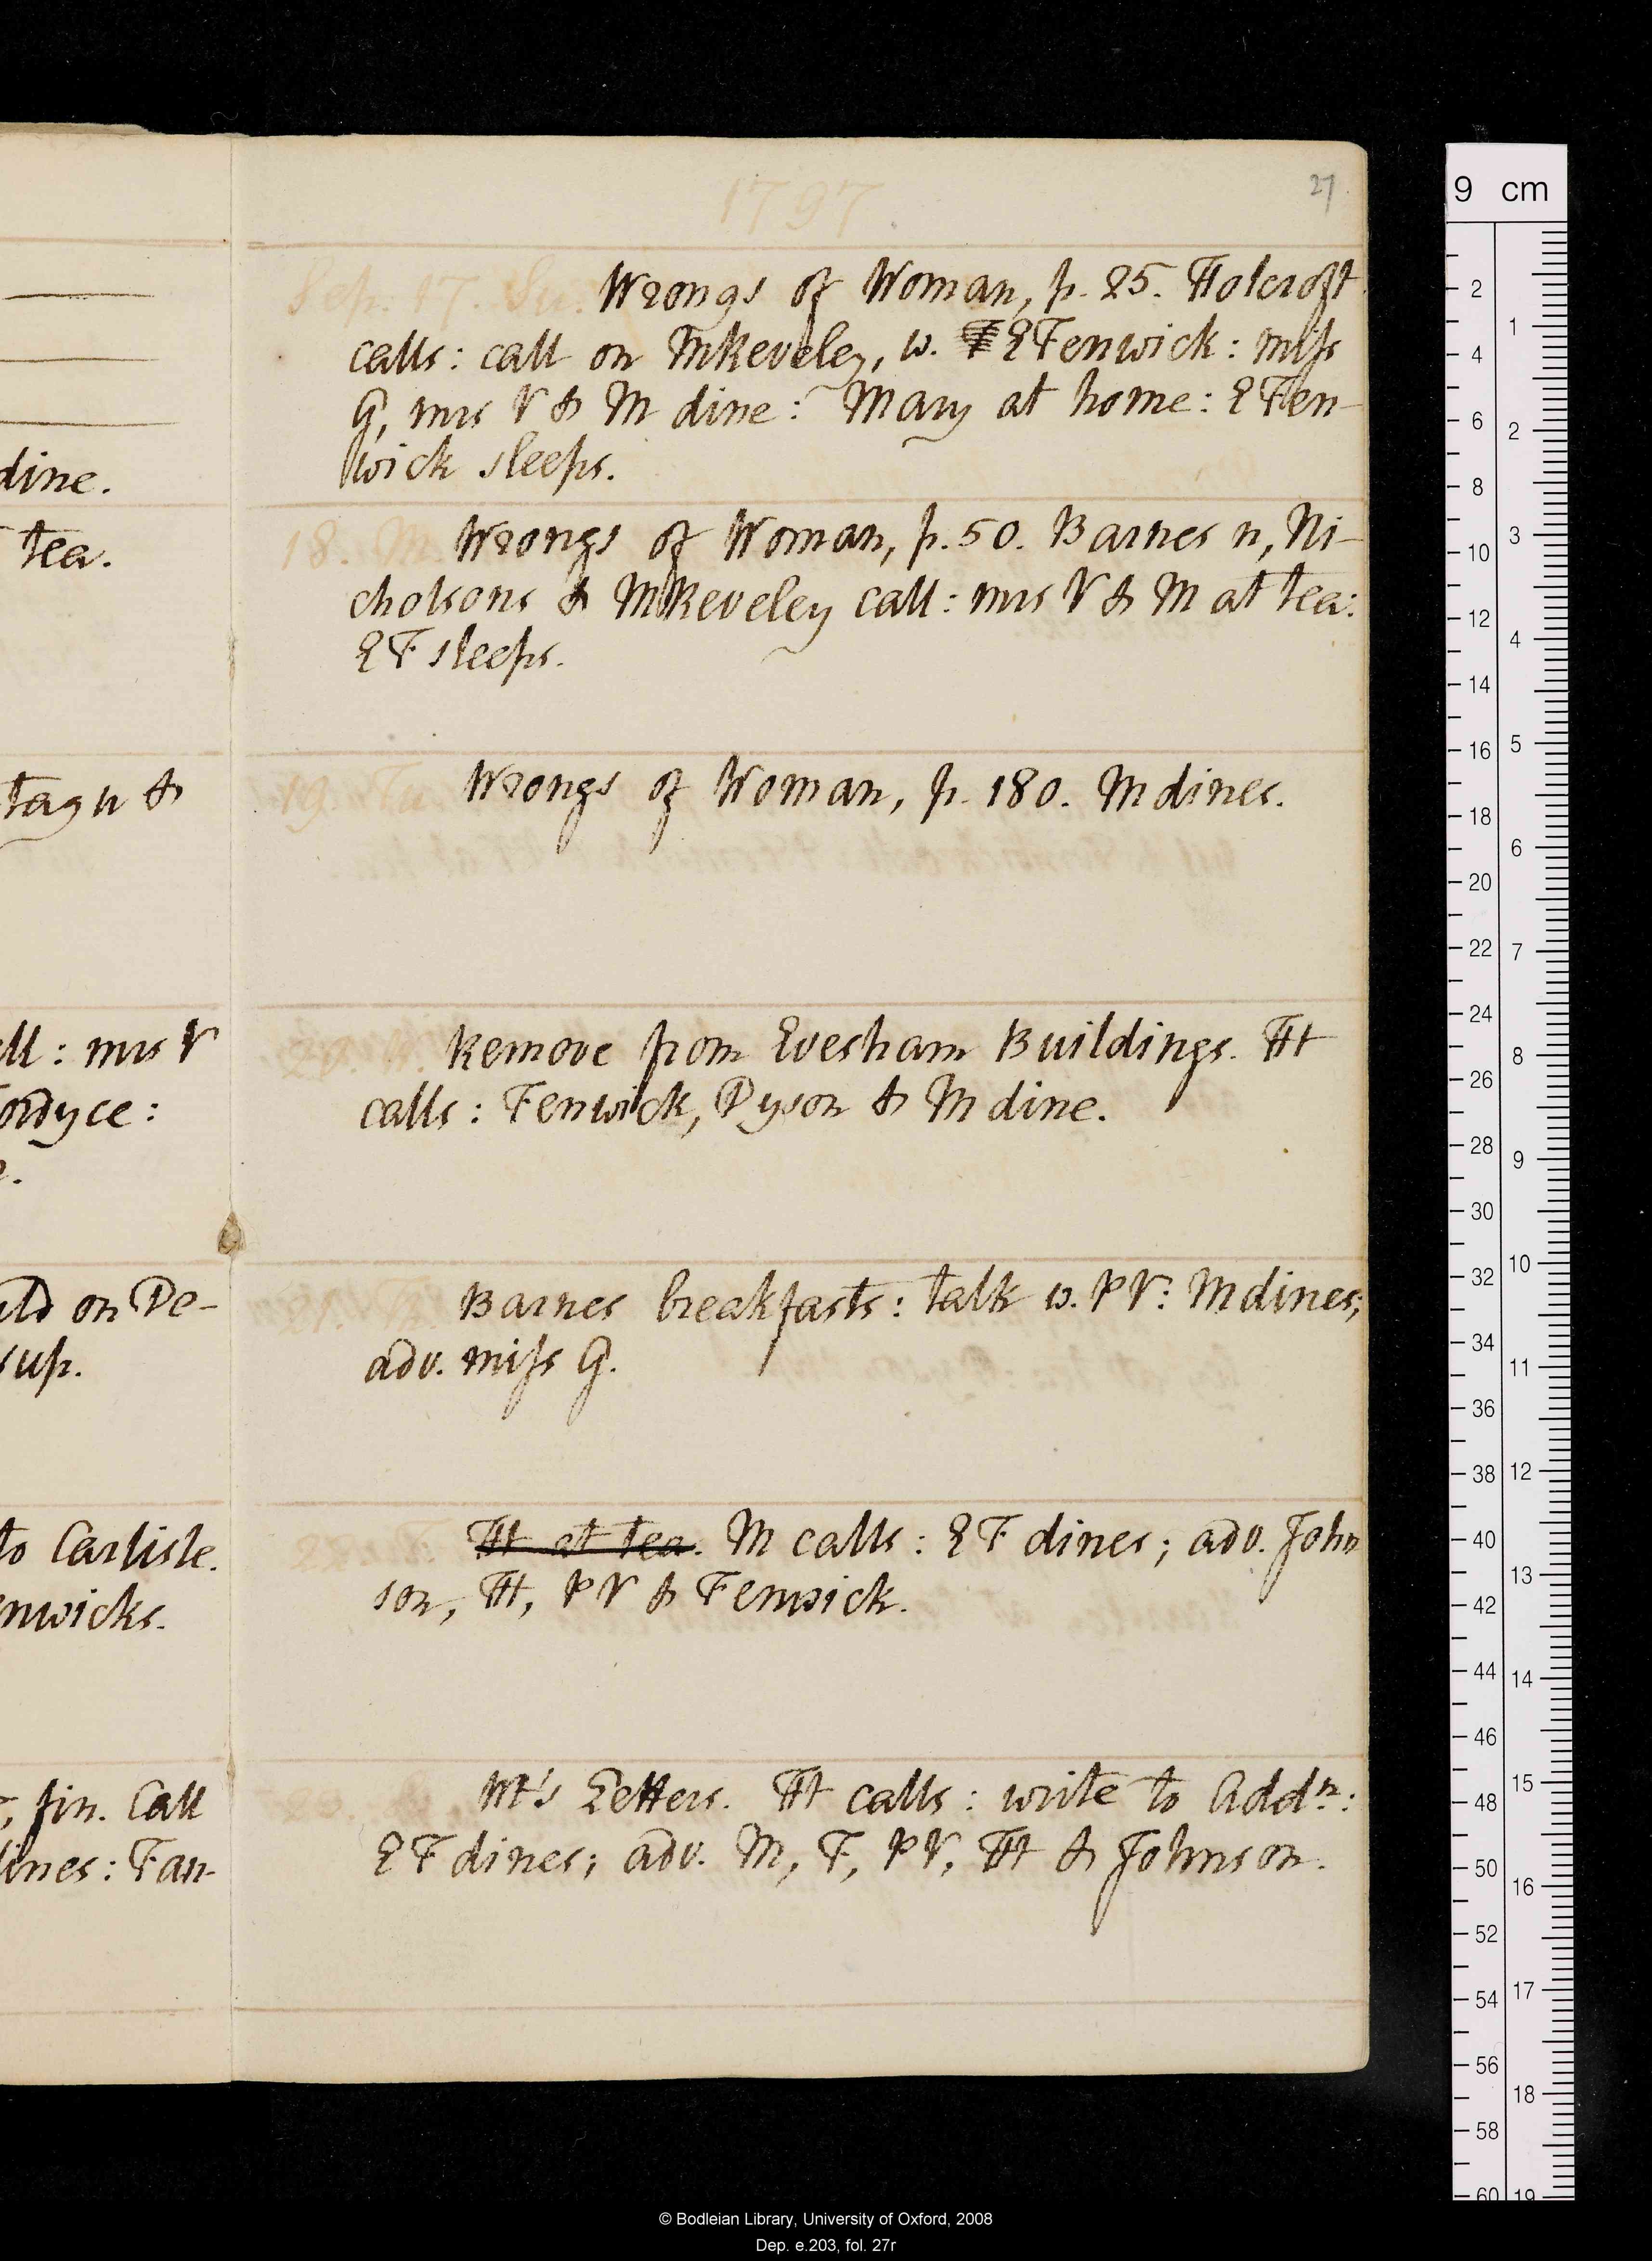 1797
27
Sep. 17. Su. Wrongs of Woman, p. 25. Holcroft
calls: call on MReveley, w. EFenwick: miss
G, mrs V & M dine: Mary at home: EFen-
wick sleeps.
18. M. Wrongs of Woman, p. 50. Barnes n, Ni-
cholsons & MReveley call: mrs V & M at tea:
EF sleeps.
19. Tu. Wrongs of Woman, p. 180. M dines.
20. W. Remove from Evesham Buildings. Ht
calls: Fenwick, Dyson & M dine.
21. Th. Barnes breakfasts: talk w. PV: M dines;
adv. miss G.
22. F. Ht at tea. M calls: EF dines; adv. John
son, Ht, PV & Fenwick.
Wt's Letters. Ht calls: write to Addn:
EF dines; adv. M, F, PV, Ht & Johnson.
dine.
tea.
tagu &
ll: mrs V
ordyce:
ld on De-
sup.
to Carlisle.
nwicks.
, fin. Call
dines: Fan-
9 cm
2
4
6
8
10
12
14
16
18
20
22
24
26
28
30
32
34
36
38
40
42
44
46
48
50
52
54
56
58
60
1
2
3
4
5
6
7
8
9
10
11
12
13
14
15
16
17
18
19
© Bodleian Library, University of Oxford, 2008
Dep. e.203, fol. 27r